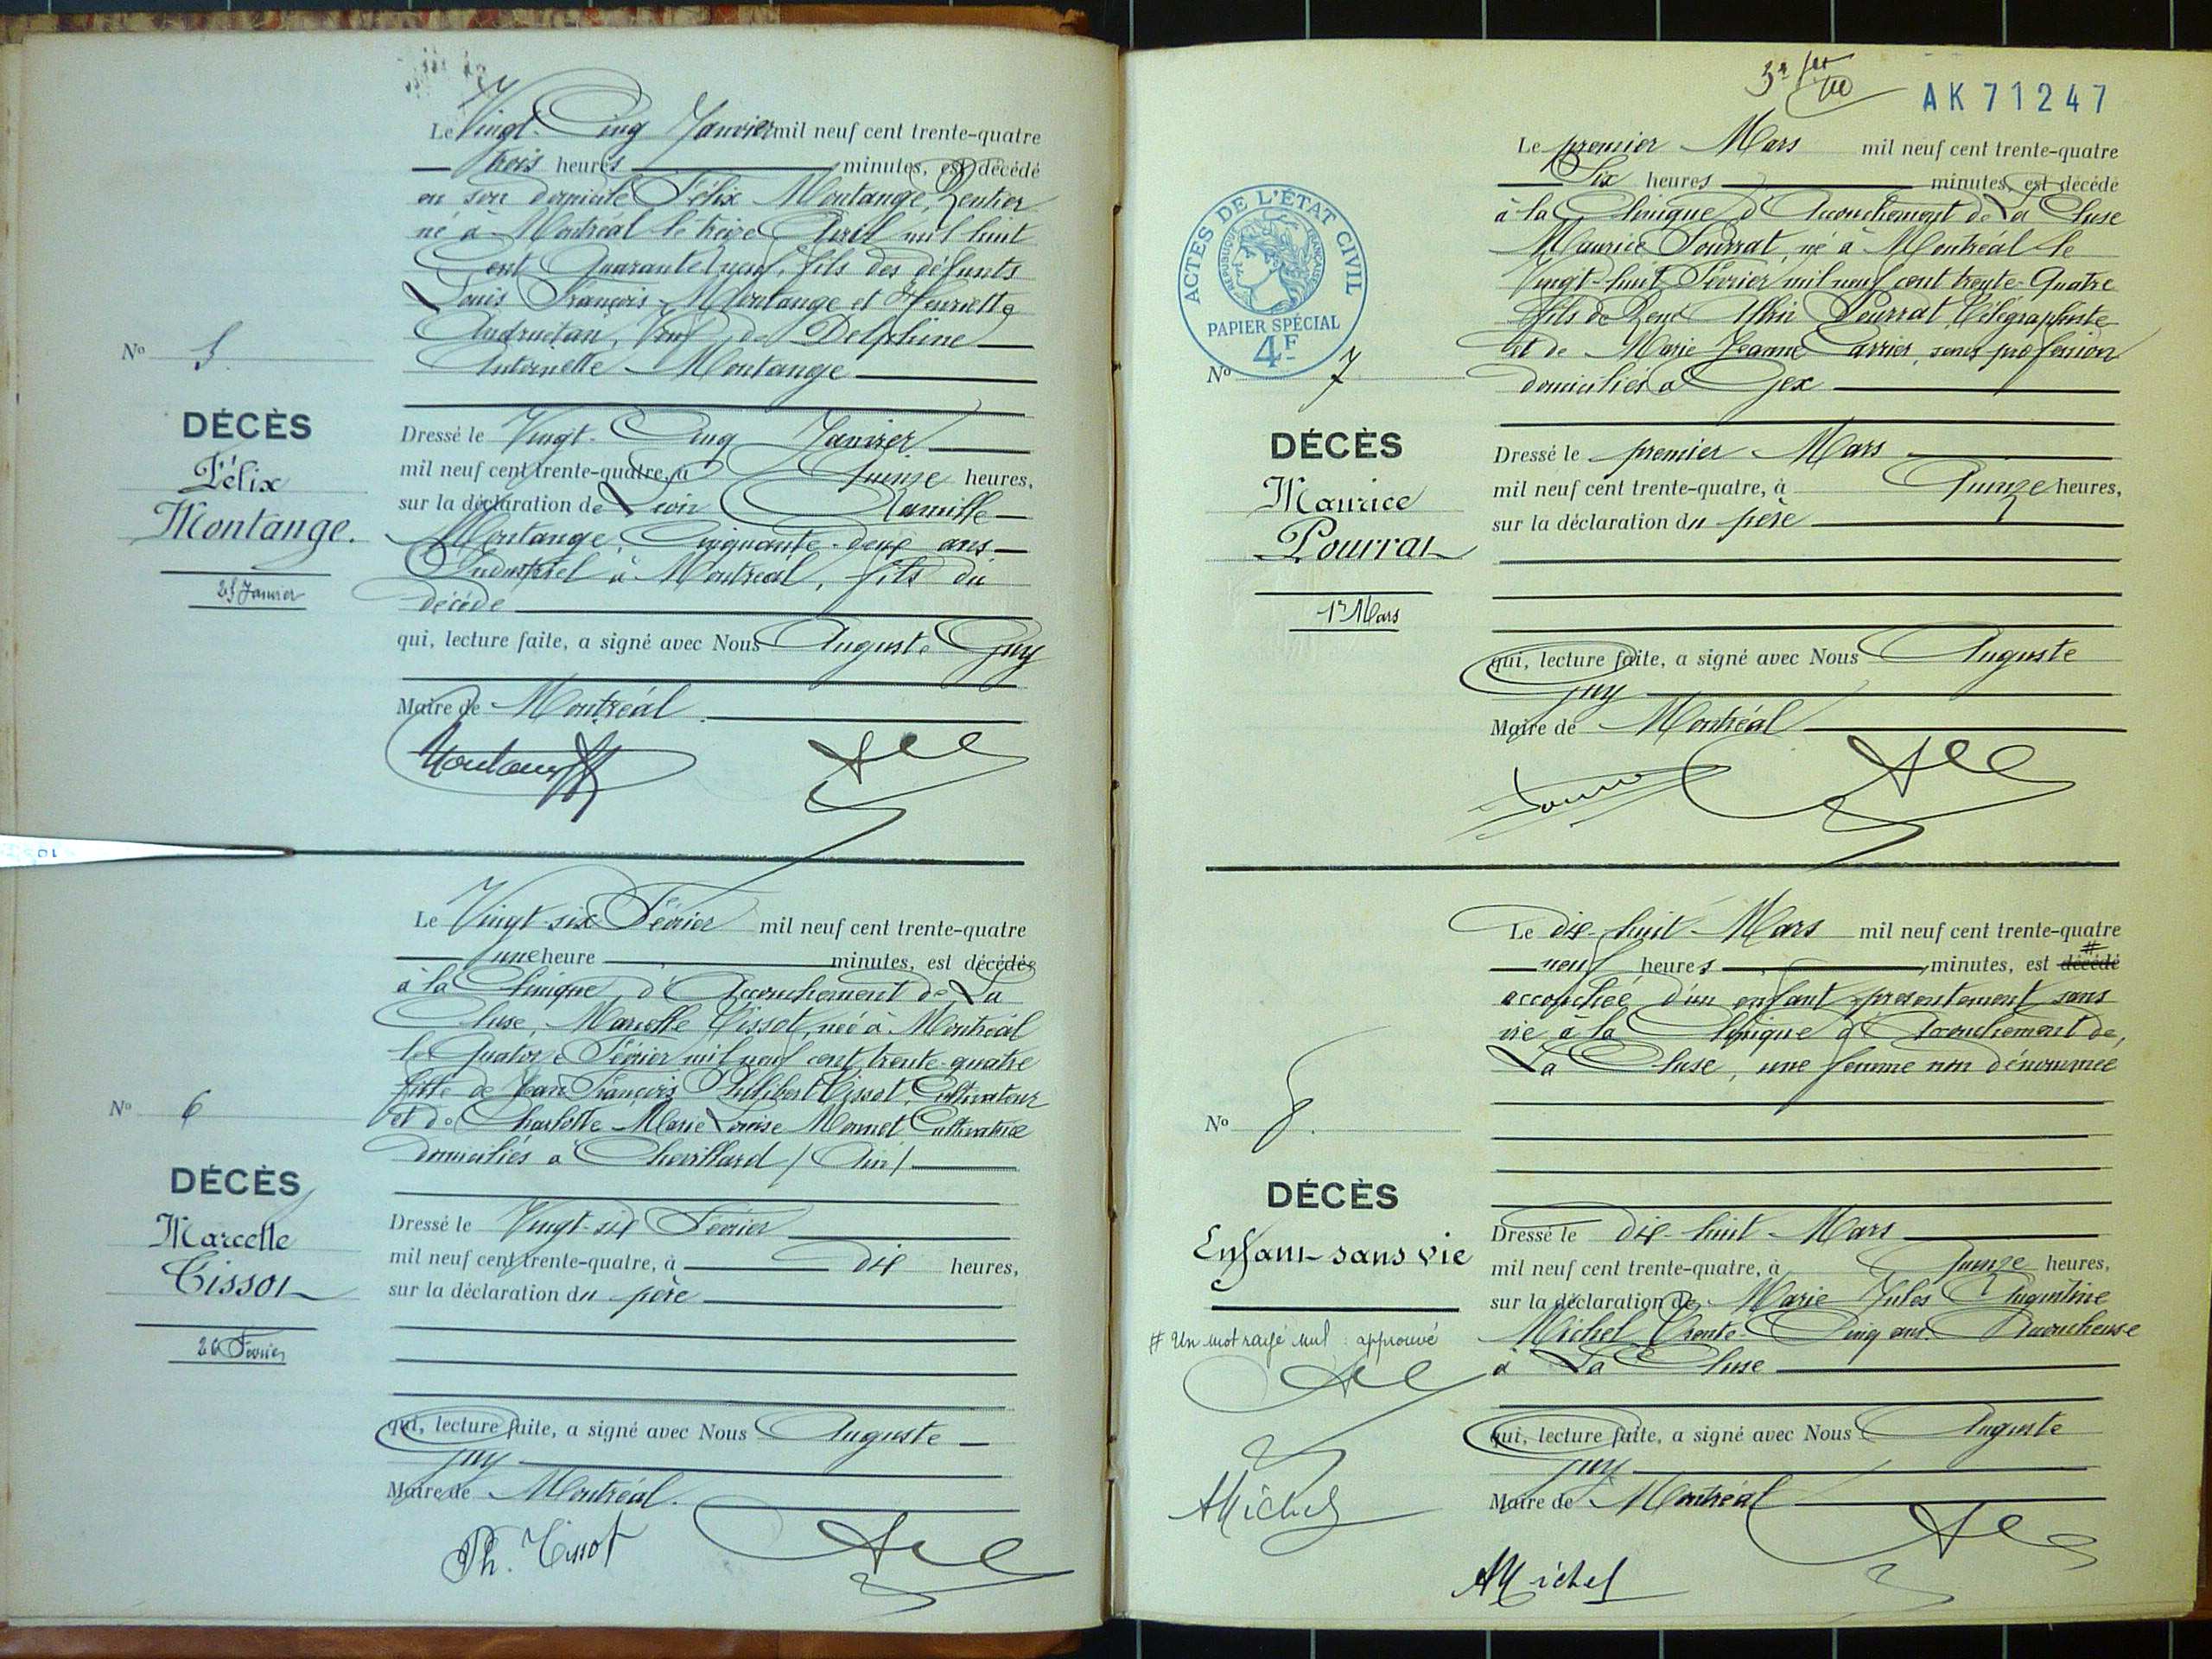 Le Vingt-Cinq Janvier mil neuf cent trente-quatre
trois heures minutes, est décédé
en son domicile Félix Montange, Rentier
né à Montréal le treize Avril mil huit
Cent Quarante neuf, fils des défunts
Louis François Montange et Henriette
Veuf de Delphine
Antoinette Montange
N° 5
DÉCÈS
Félix
Montange.
25 Janvier
Dressé le Vingt-Cinq Janvier
mil neuf cent trente-quatre, à Quinze heures,
sur la déclaration de Camille
Montange, Cinquante-deux ans
Industriel à Montréal, fils du
décédé
qui, lecture faite, a signé avec Nous Auguste Guy
Maire de Montréal
Le Vingt-six Février mil neuf cent trente-quatre
une heure minutes, est décédée
à la Clinique d'Accouchement de La
Cluse, Marcelle Tissot, née à Montréal
le Quatorze Février mil neuf cent trente-quatre
fille de Jean François Philibert Tissot, Cultivateur
et de Charlotte Marie Louise Monnet Cultivatrice
domiciliés à Chevillard / Ain /
N° 6
DÉCÈS
Marcelle
Tissot
26 Février
Dressé le Vingt-six Février
mil neuf cent trente-quatre, à dix heures,
sur la déclaration du père
qui, lecture faite, a signé avec Nous Auguste
Guy
Maire de Montréal.
Ph. Tissot
AK71247
ACTES DE L'ÉTAT CIVIL
RÉPUBLIQUE FRANÇAISE
PAPIER SPÉCIAL
4F
Le premier Mars mil neuf cent trente-quatre
Six heures minutes, est décédé
à la Clinique d'Accouchement de La Cluse
Maurice Pourrat, né à Montréal le
Vingt-huit Février mil neuf cent trente-Quatre
fils de René Pourrat, Télégraphiste
et de Marie Jeanne Carrier, sans profession
domiciliés à Gex
N° 7
DÉCÈS
Maurice
Pourrat
1r Mars
Dressé le premier Mars
mil neuf cent trente-quatre, à Quinze heures,
sur la déclaration du père
qui, lecture faite, a signé avec Nous Auguste
Guy
Maire de Montréal
Le dix-huit Mars mil neuf cent trente-quatre
neuf heures minutes, est décédé #
accouchée d'un enfant présentement sans
vie à la Clinique d'Accouchement de,
La Cluse, une femme non dénommée
N° 8.
DÉCÈS
Enfant sans vie
# Un mot rayé nul : approuvé
Michel
Dressé le dix-huit Mars
mil neuf cent trente-quatre, à Quinze heures,
sur la déclaration de Marie Jules Augustine
Michel Trente-Cinq ans Accoucheuse
à La Cluse
qui, lecture faite, a signé avec Nous Auguste
Guy
Maire de Montréal
Michel